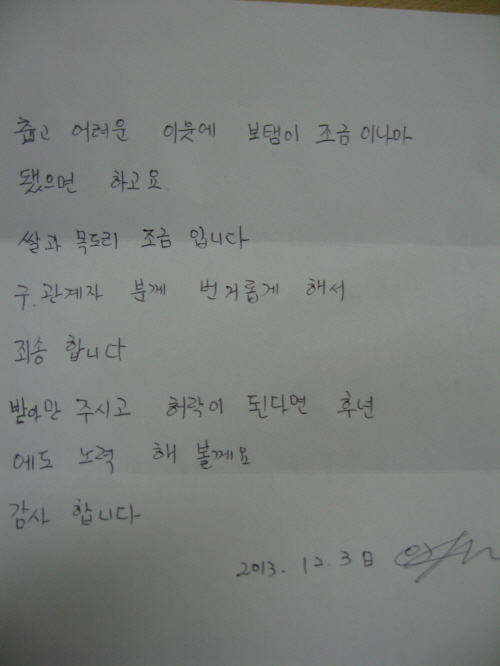 춥고 어려운 이웃에 보탬이 조금이나마
됐으면 하고요.
쌀과 목도리 조금 입니다
구.관계자 분께 번거롭게 해서
죄송 합니다
받아만 주시고 허락이 된다면 후년
에도 노력 해 볼께요
감사 합니다
2013. 12. 3日